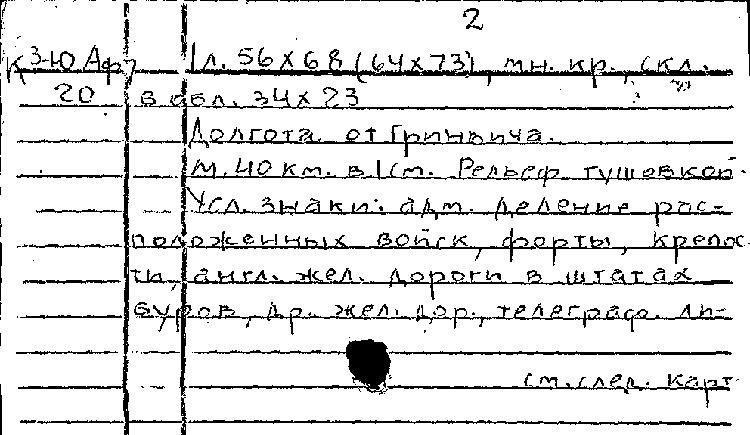 2
К 3-Ю Аф 1 л. 56х68 (64х73), мн. кр., скл.
20 в обл. 34х23
Долгота от Гринвича.
М. 40 км. в 1 см. Рельеф тушевкой.
Усл. знаки: адм. деление рас-
положенных войск, форты, крепос-
ти, англ. жел. дороги в штатах
буров, др. жел. дор., телеграф. ли-
см. след. карт